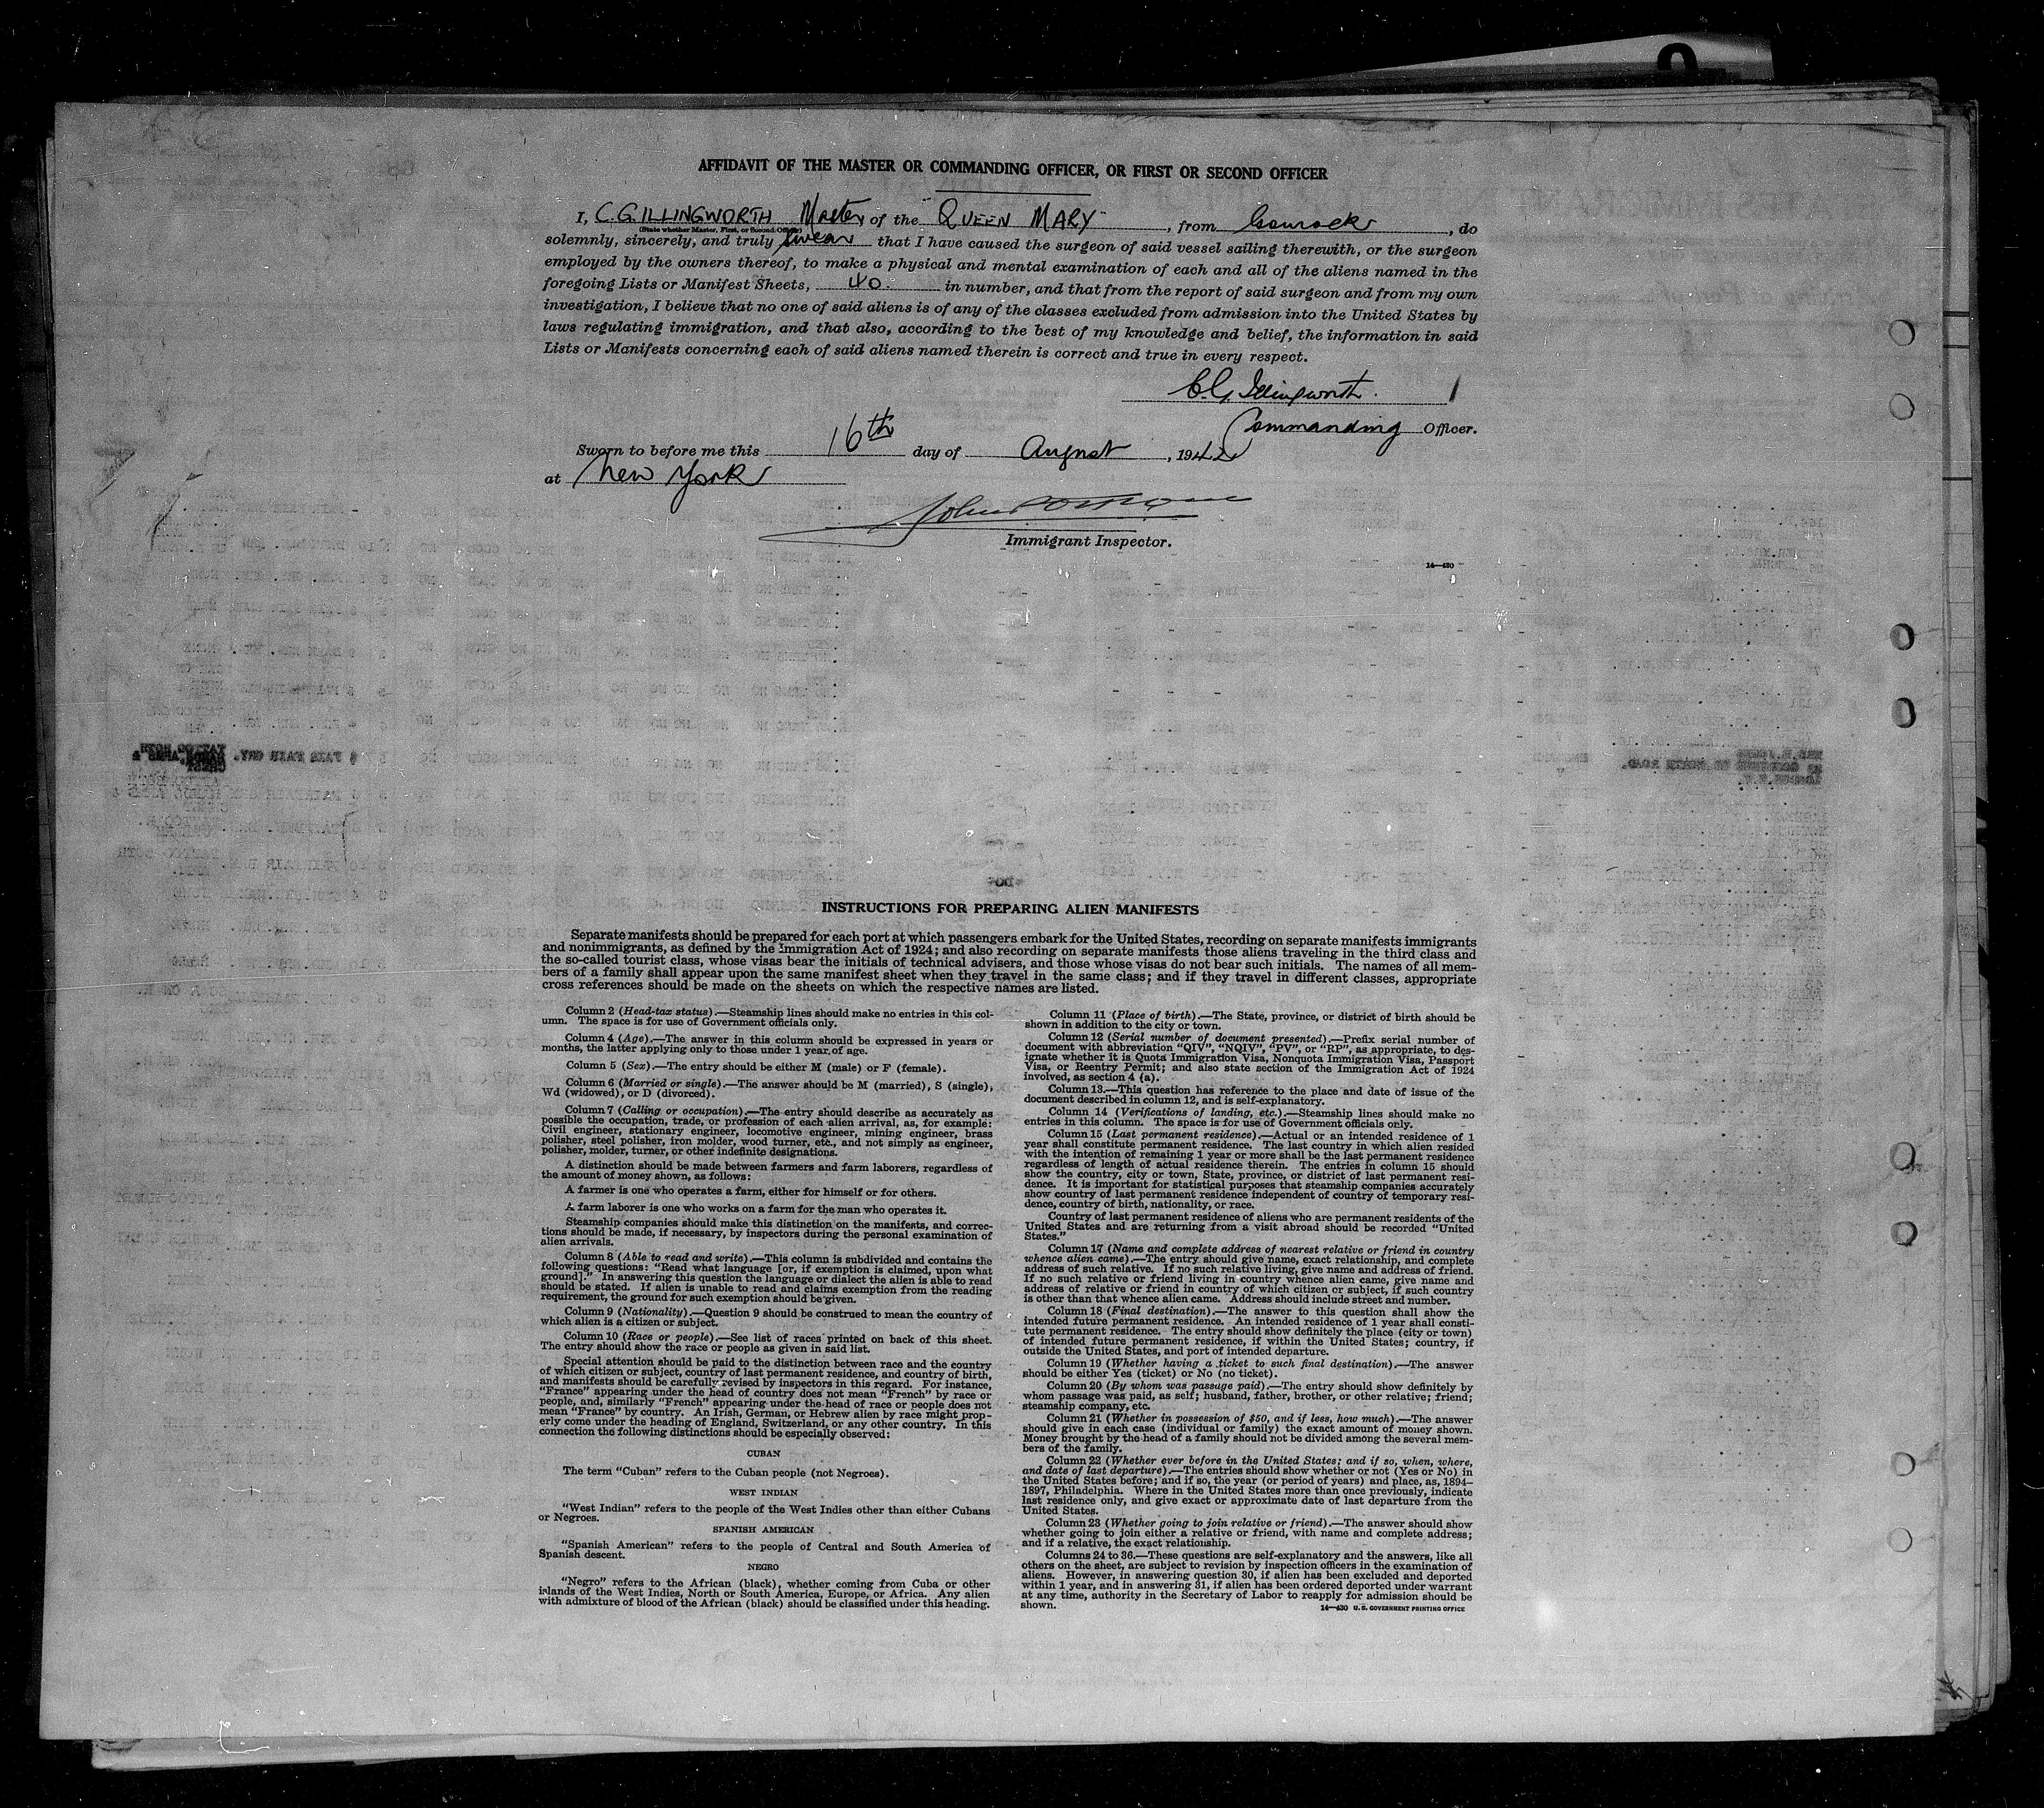 AFFIDAVIT OF THE MASTER OR COMMANDING OFFICER, OR FIRST OR SECOND OFFICER
I, C.G. ILLINGWORTH Master of the "QUEEN MARY", from Gourock, do
(State whether Master, First, or Second Officer)
solemnly, sincerely, and truly swear that I have caused the surgeon of said vessel sailing therewith, or the surgeon
employed by the owners thereof, to make a physical and mental examination of each and all of the aliens named in the
foregoing Lists or Manifest Sheets, 40. in number, and that from the report of said surgeon and from my own
investigation, I believe that no one of said aliens is of any of the classes excluded from admission into the United States by
laws regulating immigration, and that also, according to the best of my knowledge and belief, the information in said
Lists or Manifests concerning each of said aliens named therein is correct and true in every respect.
C.G. Illingworth.
Commanding Officer.
Sworn to before me this 16th day of August, 1942
at New York
Immigrant Inspector.
14—430
INSTRUCTIONS FOR PREPARING ALIEN MANIFESTS
Separate manifests should be prepared for each port at which passengers embark for the United States, recording on separate manifests immigrants
and nonimmigrants, as defined by the Immigration Act of 1924; and also recording on separate manifests those aliens traveling in the third class and
the so-called tourist class, whose visas bear the initials of technical advisers, and those whose visas do not bear such initials. The names of all mem-
bers of a family shall appear upon the same manifest sheet when they travel in the same class; and if they travel in different classes, appropriate
cross references should be made on the sheets on which the respective names are listed.
Column 2 (Head-tax status).—Steamship lines should make no entries in this col-
umn. The space is for use of Government officials only.
Column 4 (Age).—The answer in this column should be expressed in years or
months, the latter applying only to those under 1 year of age.
Column 5 (Sex).—The entry should be either M (male) or F (female).
Column 6 (Married or single).—The answer should be M (married), S (single),
Wd (widowed), or D (divorced).
Column 7 (Calling or occupation).—The entry should describe as accurately as
possible the occupation, trade, or profession of each alien arrival, as, for example:
Civil engineer, stationary engineer, locomotive engineer, mining engineer, brass
polisher, steel polisher, iron molder, wood turner, etc., and not simply as engineer,
polisher, molder, turner, or other indefinite designations.
A distinction should be made between farmers and farm laborers, regardless of
the amount of money shown, as follows:
A farmer is one who operates a farm, either for himself or for others.
A farm laborer is one who works on a farm for the man who operates it.
Steamship companies should make this distinction on the manifests, and correc-
tions should be made, if necessary, by inspectors during the personal examination of
alien arrivals.
Column 8 (Able to read and write).—This column is subdivided and contains the
following questions: "Read what language [or, if exemption is claimed, upon what
ground]." In answering this question the language or dialect the alien is able to read
should be stated. If alien is unable to read and claims exemption from the reading
requirement, the ground for such exemption should be given.
Column 9 (Nationality).—Question 9 should be construed to mean the country of
which alien is a citizen or subject.
Column 10 (Race or people).—See list of races printed on back of this sheet.
The entry should show the race or people as given in said list.
Special attention should be paid to the distinction between race and the country
of which citizen or subject, country of last permanent residence, and country of birth,
and manifests should be carefully revised by inspectors in this regard. For instance,
"France" appearing under the head of country does not mean "French" by race or
people, and, similarly "French" appearing under the head of race or people does not
mean "France" by country. An Irish, German, or Hebrew alien by race might prop-
erly come under the heading of England, Switzerland, or any other country. In this
connection the following distinctions should be especially observed:
CUBAN
The term "Cuban" refers to the Cuban people (not Negroes).
WEST INDIAN
"West Indian" refers to the people of the West Indies other than either Cubans
or Negroes.
SPANISH AMERICAN
"Spanish American" refers to the people of Central and South America of
Spanish descent.
NEGRO
"Negro" refers to the African (black), whether coming from Cuba or other
islands of the West Indies, North or South America, Europe, or Africa. Any alien
with admixture of blood of the African (black) should be classified under this heading.
Column 11 (Place of birth).—The State, province, or district of birth should be
shown in addition to the city or town.
Column 12 (Serial number of document presented).—Prefix serial number of
document with abbreviation "QIV", "NQIV", "PV", or "RP", as appropriate, to des-
ignate whether it is Quota Immigration Visa, Nonquota Immigration Visa, Passport
Visa, or Reentry Permit; and also state section of the Immigration Act of 1924
involved, as section 4 (a).
Column 13.—This question has reference to the place and date of issue of the
document described in column 12, and is self-explanatory.
Column 14 (Verifications of landing, etc.).—Steamship lines should make no
entries in this column. The space is for use of Government officials only.
Column 15 (Last permanent residence).—Actual or an intended residence of 1
year shall constitute permanent residence. The last country in which alien resided
with the intention of remaining 1 year or more shall be the last permanent residence
regardless of length of actual residence therein. The entries in column 15 should
show the country, city or town, State, province, or district of last permanent resi-
dence. It is important for statistical purposes that steamship companies accurately
show country of last permanent residence independent of country of temporary resi-
dence, country of birth, nationality, or race.
Country of last permanent residence of aliens who are permanent residents of the
United States and are returning from a visit abroad should be recorded "United
States."
Column 17 (Name and complete address of nearest relative or friend in country
whence alien came).—The entry should give name, exact relationship, and complete
address of such relative. If no such relative living, give name and address of friend.
If no such relative or friend living in country whence alien came, give name and
address of relative or friend in country of which citizen or subject, if such country
is other than that whence alien came. Address should include street and number.
Column 18 (Final destination).—The answer to this question shall show the
intended future permanent residence. An intended residence of 1 year shall consti-
tute permanent residence. The entry should show definitely the place (city or town)
of intended future permanent residence, if within the United States; country, if
outside the United States, and port of intended departure.
Column 19 (Whether having a ticket to such final destination).—The answer
should be either Yes (ticket) or No (no ticket).
Column 20 (By whom was passage paid).—The entry should show definitely by
whom passage was paid, as self; husband, father, brother, or other relative; friend;
steamship company, etc.
Column 21 (Whether in possession of $50, and if less, how much).—The answer
should give in each case (individual or family) the exact amount of money shown.
Money brought by the head of a family should not be divided among the several mem-
bers of the family.
Column 22 (Whether ever before in the United States; and if so, when, where,
and date of last departure).—The entries should show whether or not (Yes or No) in
the United States before; and if so, the year (or period of years) and place, as, 1894–
1897, Philadelphia. Where in the United States more than once previously, indicate
last residence only, and give exact or approximate date of last departure from the
United States.
Column 23 (Whether going to join relative or friend).—The answer should show
whether going to join either a relative or friend, with name and complete address;
and if a relative, the exact relationship.
Columns 24 to 36.—These questions are self-explanatory and the answers, like all
others on the sheet, are subject to revision by inspection officers in the examination of
aliens. However, in answering question 30, if alien has been excluded and deported
within 1 year, and in answering 31, if alien has been ordered deported under warrant
at any time, authority in the Secretary of Labor to reapply for admission should be
shown.
14—430 U. S. GOVERNMENT PRINTING OFFICE